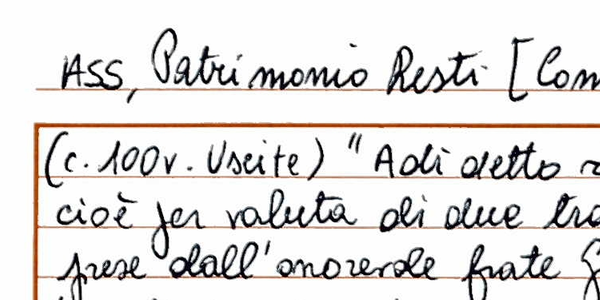 ASS, Patrimonio Resti [Com
(c. 100v. Uscite) "Adi detto
cioè per valuta di due tra
prese dall'onorevole frate